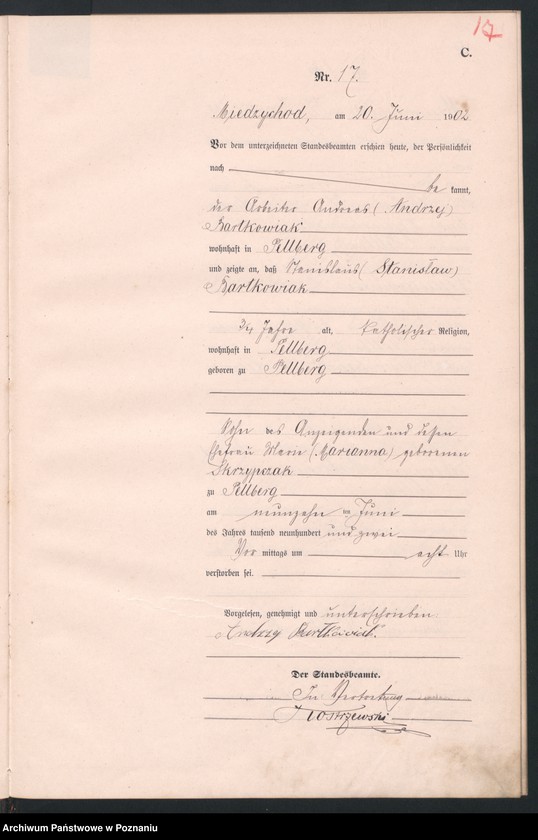 17
C.
Nr. 17.
Miedzychod, am 20. Juni 1902
Vor dem unterzeichneten Standesbeamten erschien heute, der Persönlichkeit
nach
be kannt,
der Arbeiter Andreas (Andrzy)
Bartkowiak
wohnhaft in Pellberg
und zeigte an, daß Stanislaus (Stanisław)
Bartkowiak
3/4 Jahre alt, katholischer Religion,
wohnhaft in Pellberg
geboren zu Pellberg
Sohn des Anzeigenden und dessen
Ehefrau Marie (Marianna) geborenen
Skrzypczak
zu Pellberg
am neunzehn ten Juni
des Jahres tausend neunhundert und zwei
Vor mittags um acht Uhr
verstorben sei.
Vorgelesen, genehmigt und unterschrieben
Andrzy Bartkowiak.
Der Standesbeamte.
In Vertretung
Archiwum Państwowe w Poznaniu